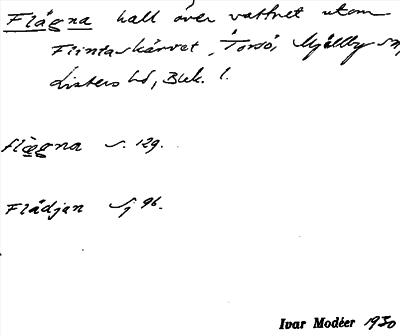 Flågna hall över vattnet utom
Flintaskärvet, Torsö, Mjällby sn,
Listers hd, Blek. l.
flägna s. 129.
Flådjan Sj 96.
Ivar Modéer 1930